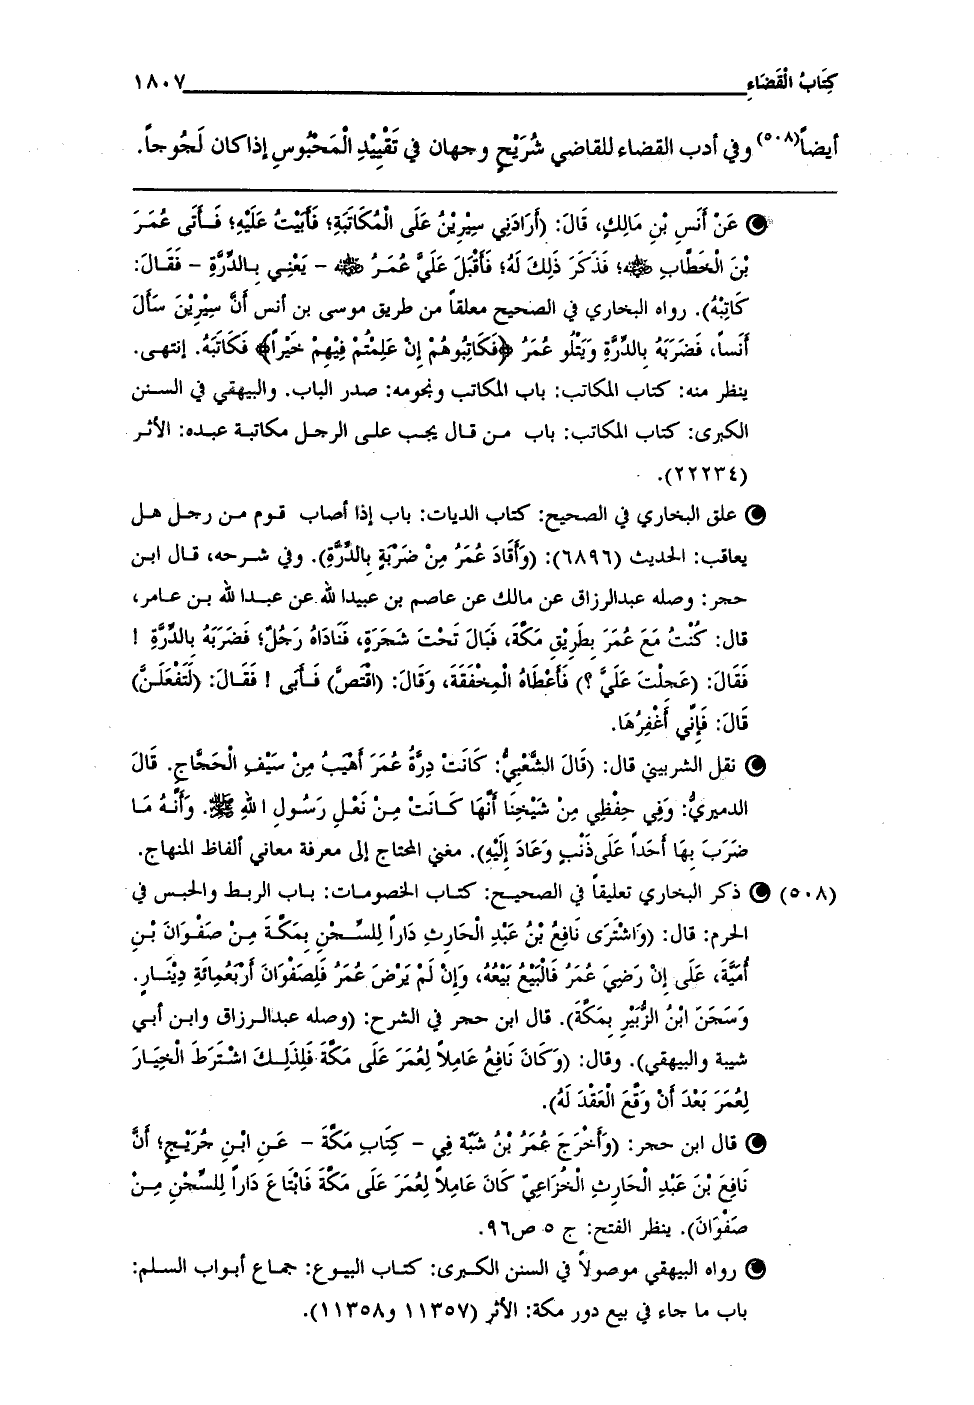 كِتَابُ الْقَضَاءِ ١٨٠٧
أيضاً(٥٠٨) وفي أدب القضاء للقاضي شُرَيْحٍ وجهان في تَقْيِيْدِ الْمَحْبُوسِ إذا كان لَجُوجاً.
عَنْ أَنَسِ بْنِ مَالِكٍ، قَالَ: (أَرَادَنِي سِيْرِيْنُ عَلَى الْمُكَاتَبَةِ؛ فَأَبَيْتُ عَلَيْهِ؛ فَـأَتَى عُمَـرَ
بْنَ الْخَطَّابِ ﷺ؛ فَذَكَرَ ذَلِكَ لَهُ؛ فَأَقْبَلَ عَلَيَّ عُمَـرُ ﷺ - يَعْنِي بِـالدِّرَّةِ - فَقَـالَ:
كَاتِبْهُ). رواه البخاري في الصحيح معلقاً من طريق موسى بن أنس أَنَّ سِيْرِيْنَ سَأَلَ
أَنَساً، فَضَرَبَهُ بِالدِّرَّةِ وَيَتْلُو عُمَرُ ﴿فَكَاتِبُوهُمْ إِنْ عَلِمْتُمْ فِيْهِمْ خَيْراً﴾ فَكَاتَبَهُ. إنتهى.
ينظر منه: كتاب المكاتب: باب المكاتب ونجومه: صدر الباب. والبيهقي في السنن
الكبرى: كتاب المكاتب: باب من قال يجب على الرجل مكاتبة عبده: الأثر
(٢٢٢٣٤).
علق البخاري في الصحيح: كتاب الديات: باب إذا أصاب قوم من رجل هل
يعاقب: الحديث (٦٨٩٦): (وَأَقَادَ عُمَرُ مِنْ ضَرْبَةٍ بِالدِّرَّةِ). وفي شرحه، قال ابن
حجر: وصله عبدالرزاق عن مالك عن عاصم بن عبيدا لله عن عبدا لله بن عامر،
قال: كُنْتُ مَعَ عُمَرَ بِطَرِيْقِ مَكَّةَ، فَبَالَ تَحْتَ شَجَرَةٍ، فَنَادَاهُ رَجُلٌ؛ فَضَرَبَهُ بِالدِّرَّةِ !
فَقَالَ: (عَجِلْتَ عَلَيَّ ؟) فَأَعْطَاهُ الْمِخْفَقَةَ، وَقَالَ: (اقْتَصَّ) فَـأَبَى ! فَقَـالَ: (لَتَفْعَلَـنَّ)
قَالَ: فَإِنِّي أَغْفِرُهَا.
نقل الشربيني قال: (قَالَ الشَّعْبِيُّ: كَانَتْ دِرَّةُ عُمَرَ أَهْيَبُ مِنْ سَيْفِ الْحَجَّاجِ. قَالَ
الدميريُّ: وَفِي حِفْظِي مِنْ شَيْخِنَا أَنَّهَا كَـانَتْ مِـنْ نَعْلِ رَسُـولِ اللهِ ﷺ. وَأَنَّـهُ مَـا
ضَرَبَ بِهَا أَحَداً عَلَى ذَنْبٍ وَعَادَ إِلَيْهِ). مغني المحتاج إلى معرفة معاني ألفاظ المنهاج.
(٥٠٨) ذكر البخاري تعليقاً في الصحيح: كتاب الخصومات: باب الربط والحبس في
الحرم: قال: (وَاشْتَرَى نَافِعُ بْنُ عَبْدِ الْحَارِثِ دَاراً لِلسِّـجْنِ بِمَكَّـةَ مِـنْ صَفْوَانَ بْنِ
أُمَيَّةَ، عَلَى إِنْ رَضِيَ عُمَرُ فَالْبَيْعُ بَيْعُهُ، وَإِنْ لَمْ يَرْضَ عُمَرُ فَلِصَفْوَانَ أَرْبَعُمِائَةِ دِيْنَـارٍ.
وَسَجَنَ ابْنُ الزُّبَيْرِ بِمَكَّةَ). قال ابن حجر في الشرح: (وصله عبدالرزاق وابن أبي
شيبة والبيهقي). وقال: (وَكَانَ نَافِعُ عَامِلاً لِعُمَرَ عَلَى مَكَّةَ فَلِذَلِـكَ اشْتَرَطَ الْخِيَارَ
لِعُمَرَ بَعْدَ أَنْ وَقَّعَ الْعَقْدَ لَهُ).
قال ابن حجر: (وَأَخْرَجَ عُمَرُ بْنُ شَبَّةَ فِي - كِتَابِ مَكَّةَ - عَـنِ ابْـنِ جُرَيْـجٍ؛ أَنَّ
نَافِعَ بْنَ عَبْدِ الْحَارِثِ الْخُزَاعِيِّ كَانَ عَامِلاً لِعُمَرَ عَلَى مَكَّةَ فَابْتَاعَ دَاراً لِلسِّجْنِ مِـنْ
صَفْوَانَ). ينظر الفتح: ج ٥ ص٩٦.
رواه البيهقي موصولاً في السنن الكبرى: كتاب البيوع: جماع أبواب السلم:
باب ما جاء في بيع دور مكة: الأثر (١١٣٥٧ و١١٣٥٨).